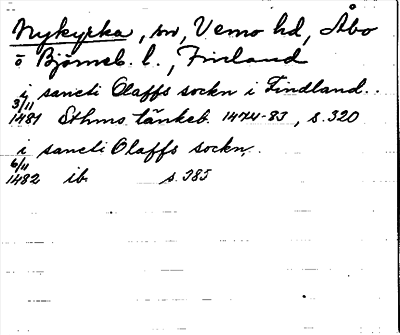 Nykyrka, sn, Vemo hd, Åbo
o Björneb. l., Finland
i sancti Olaffs sockn i Findland..
3/11
1481 Sthms tänkeb. 1474-83, s. 320
i sancti Olaffs sockn.
6/11
1482 ib. s. 385